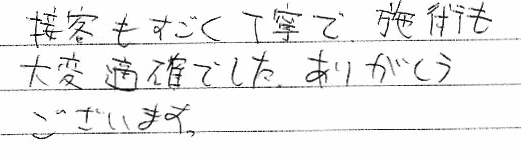 接客もすごく丁寧で、施術も
大変適確でした。ありがとう
ございます。